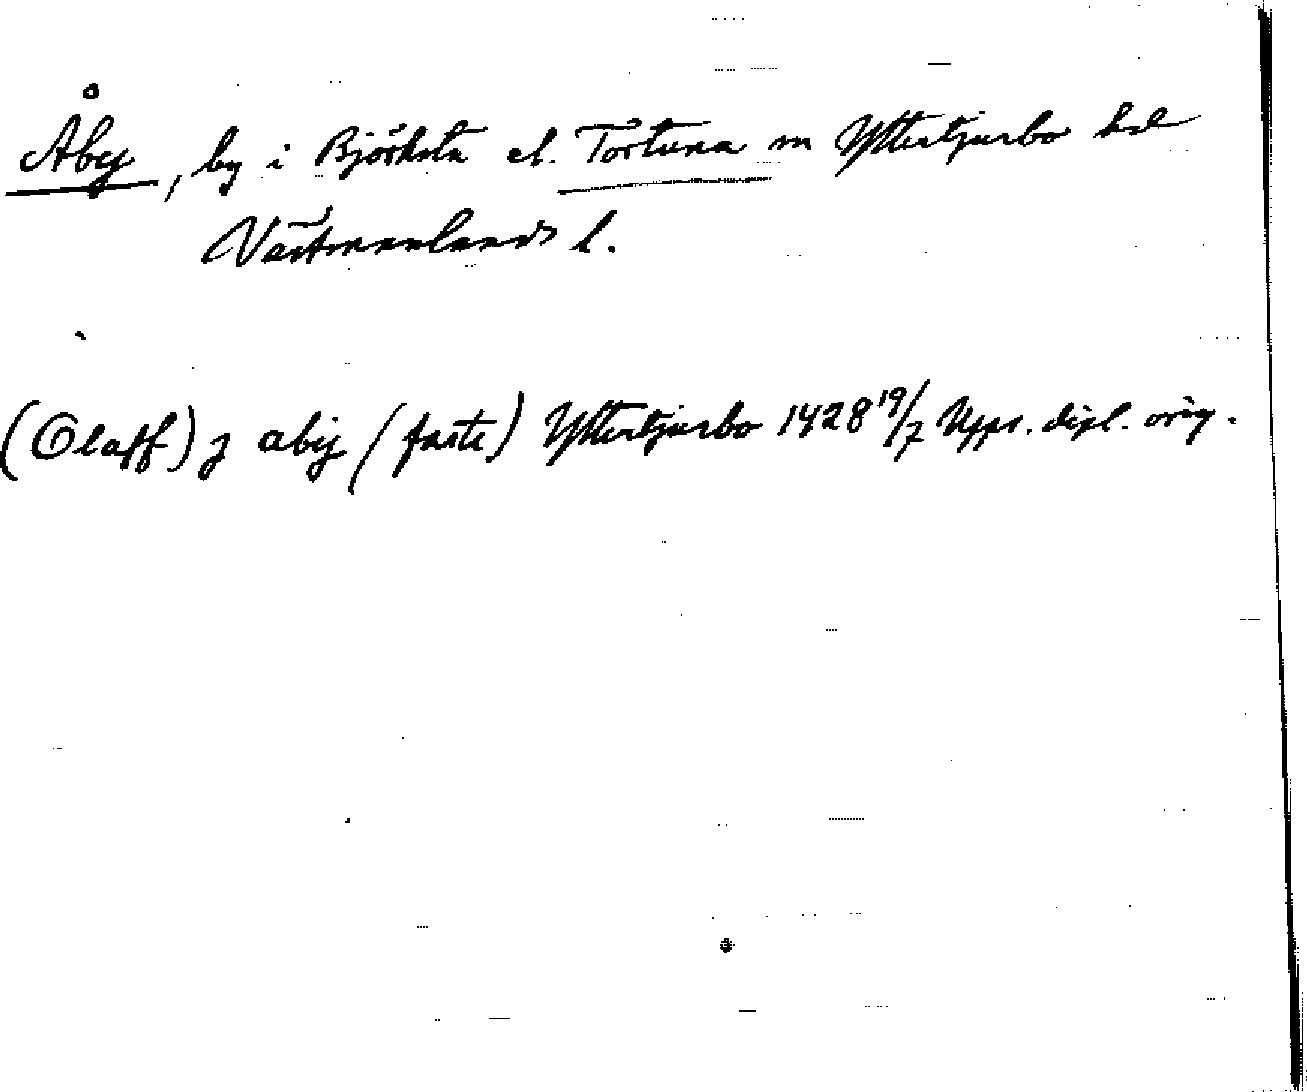 Åby, by i Björksta el. Tortuna sn Yttertjurbo hd
Västmanlands l.
(Olaff) j abij (faste) Yttertjurbo 1428 19/7 Upps. dipl. orig.